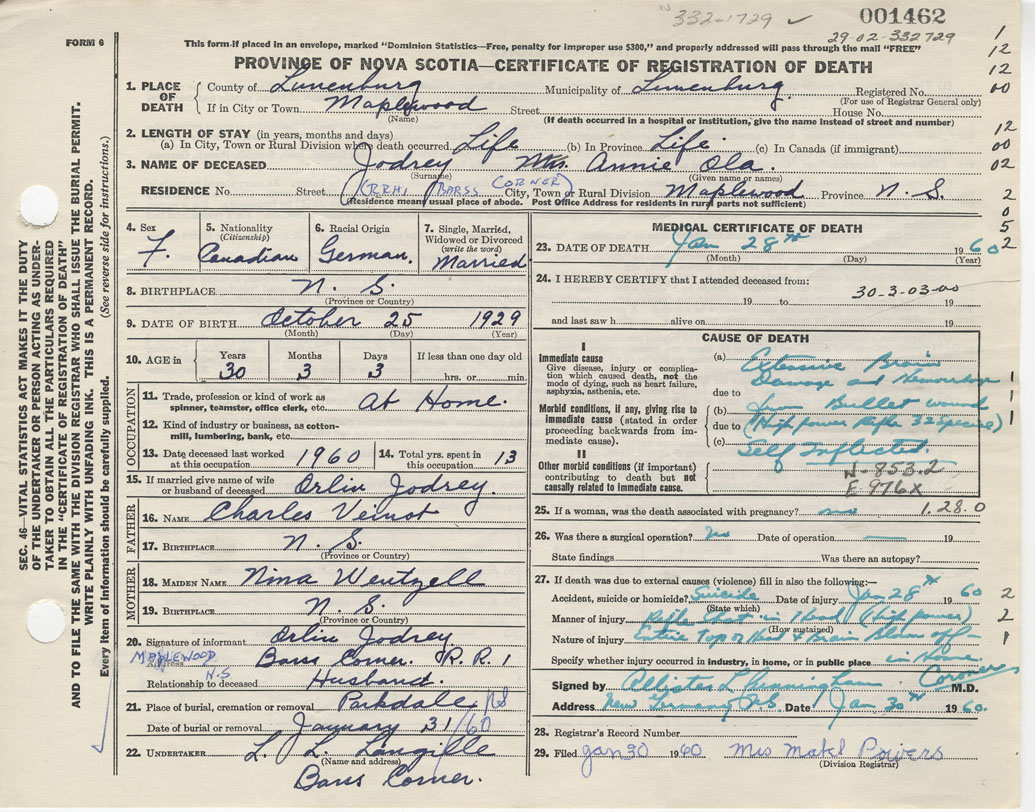 N 332-1729 ✓
001462
29 02-332729
FORM 6
This form if placed in an envelope, marked "Dominion Statistics—Free, penalty for improper use $300," and properly addressed will pass through the mail "FREE"
PROVINCE OF NOVA SCOTIA—CERTIFICATE OF REGISTRATION OF DEATH
SEC. 46—VITAL STATISTICS ACT MAKES IT THE DUTY
OF THE UNDERTAKER OR PERSON ACTING AS UNDER-
TAKER TO OBTAIN ALL THE PARTICULARS REQUIRED
IN THE "CERTIFICATE OF REGISTRATION OF DEATH"
AND TO FILE THE SAME WITH THE DIVISION REGISTRAR WHO SHALL ISSUE THE BURIAL PERMIT.
WRITE PLAINLY WITH UNFADING INK. THIS IS A PERMANENT RECORD.
Every item of information should be carefully supplied. (See reverse side for instructions.)
1. PLACE OF DEATH County of Lunenburg Municipality of Lunenburg Registered No.
(For use of Registrar General only)
If in City or Town Maplewood Street House No.
(Name) (If death occurred in a hospital or institution, give the name instead of street and number)
2. LENGTH OF STAY (in years, months and days)
(a) In City, Town or Rural Division where death occurred Life (b) In Province Life (c) In Canada (if immigrant)
3. NAME OF DECEASED Jodrey Mrs. Annie Ola.
(Surname) (Given name or names)
RESIDENCE No. Street (RR#1 BARSS CORNER) City, Town or Rural Division Maplewood Province N. S.
(Residence means usual place of abode. Post Office Address for residents in rural parts not sufficient)
4. Sex F.
5. Nationality (Citizenship) Canadian
6. Racial Origin German.
7. Single, Married, Widowed or Divorced (write the word) Married
8. BIRTHPLACE N. S.
(Province or Country)
9. DATE OF BIRTH October 25 1929
(Month) (Day) (Year)
10. AGE in Years 30 Months 3 Days 3 If less than one day old hrs. or min.
OCCUPATION
11. Trade, profession or kind of work as spinner, teamster, office clerk, etc. At Home.
12. Kind of industry or business, as cotton-mill, lumbering, bank, etc.
13. Date deceased last worked at this occupation 1960
14. Total yrs. spent in this occupation 13
15. If married give name of wife or husband of deceased Orlin Jodrey.
FATHER
16. NAME Charles Veinot
17. BIRTHPLACE N. S.
(Province or Country)
MOTHER
18. MAIDEN NAME Nina Wentzell
19. BIRTHPLACE N. S.
(Province or Country)
20. Signature of informant Orlin Jodrey
MAPLEWOOD N.S Address Barss Corner. R. R. 1
Relationship to deceased Husband.
21. Place of burial, cremation or removal Parkdale NS
Date of burial or removal January 31/60
22. UNDERTAKER L. L. Langille
(Name and address)
Barss Corner.
MEDICAL CERTIFICATE OF DEATH
23. DATE OF DEATH Jan 28th 1960
(Month) (Day) (Year)
24. I HEREBY CERTIFY that I attended deceased from:
30-3-03-00
19 to 19
and last saw h alive on 19
CAUSE OF DEATH
I
Immediate cause
Give disease, injury, or complication which caused death, not the mode of dying, such as heart failure, asphyxia, asthenia, etc.
(a) Extensive Brain
Damage and Hemorrhage
due to
Morbid conditions, if any, giving rise to immediate cause (stated in order proceeding backwards from immediate cause).
(b) from Bullet wound
due to (High power Rifle 32 Special)
(c) Self Inflicted.
II
Other morbid conditions (if important) contributing to death but not causally related to immediate cause.
N-853.2
E 976X
25. If a woman, was the death associated with pregnancy? no 1.28.0
26. Was there a surgical operation? no Date of operation 19
State findings Was there an autopsy?
27. If death was due to external causes (violence) fill in also the following:—
Accident, suicide or homicide? Suicide Date of injury Jan 28th 1960
(State which)
Manner of injury Rifle shot in Head (High power)
(How sustained)
Nature of injury Entire Top of Head & Brain Blown off-
Specify whether injury occurred in industry, in home, or in public place in Home
Signed by Allister L Cunningham Coroner M.D.
Address New Germany N.S Date Jan 30th 1960.
28. Registrar's Record Number
29. Filed Jan 30 1960 Mrs Mabel Powers
(Division Registrar)
1
12
12
00
12
00
02
2
0
5
2
1
1
2
2
1